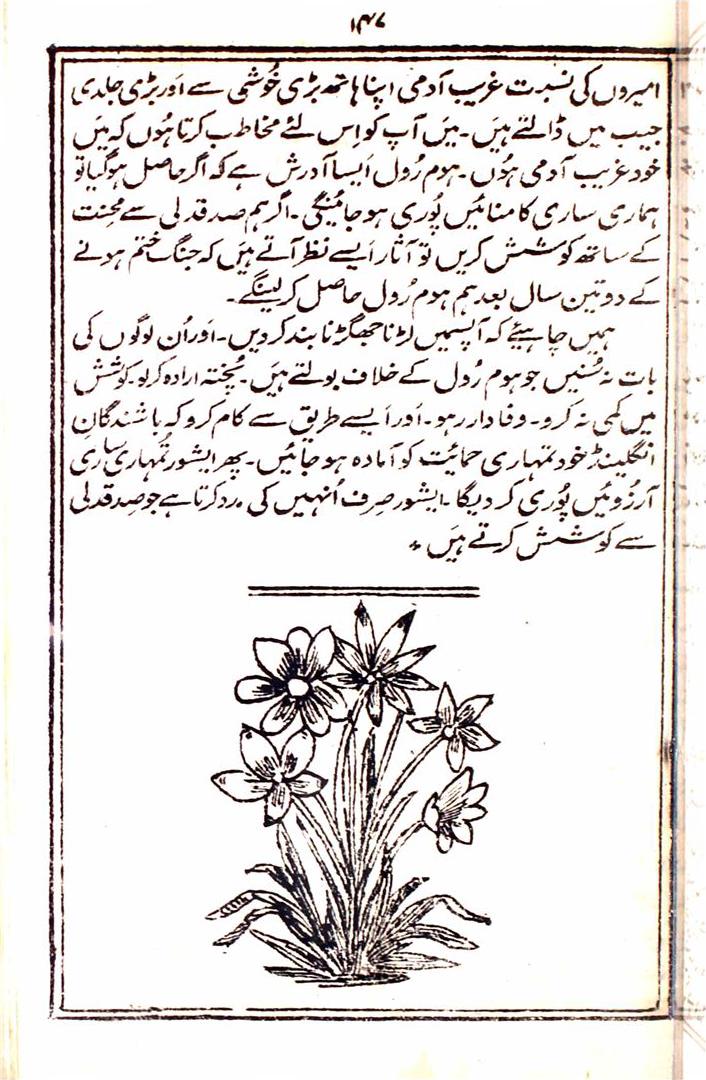 ۱۴۷
امیروں کی نسبت غریب آدمی اپنا ہاتھ بڑی خُوشی سے اَور بڑی جلدی
جیب میں ڈالتے ہیَں۔ میَں آپ کو اِس لئے مخاطب کرتا ہُوں کہ میَں
خود غریب آدمی ہُوں۔ ہوم رُول اَیسا آدرش ہے کہ اگر حاصل ہو گیا تو
ہماری ساری کامنائیں پُوری ہو جائینگی۔ اگر ہم صدقدلی سے محِنت
کے ساتھ کوشش کریں تو آثار اَیسے نظر آتے ہیَں کہ جنگ ختم ہونے
کے دو تین سال بعد ہم ہوم رُول حاصل کر لینگے۔
ہمیں چاہیئے کہ آپسمیں لڑنا جھگڑنا بند کر دیں۔ اَور اُن لوگوں کی
بات نہ سُنیں جو ہوم رُول کے خلاف بولتے ہیَں۔ پُختہ ارادہ کر لو۔ کوشش
میں کمی نہ کرو۔ وفادار رہو۔ اَور اَیسے طریق سے کام کرو کہ باشندگانِ
انگلینڈ خود تمہاری حمائیت کو آمادہ ہو جائیں۔ پھر ایشور تُمہاری ساری
آرزوئیں پُوری کر دیگا۔ ایشور صِرف اُنہیں کی مدد کرتا ہے جو صدقدلی
سے کوشش کرتے ہیَں ٭